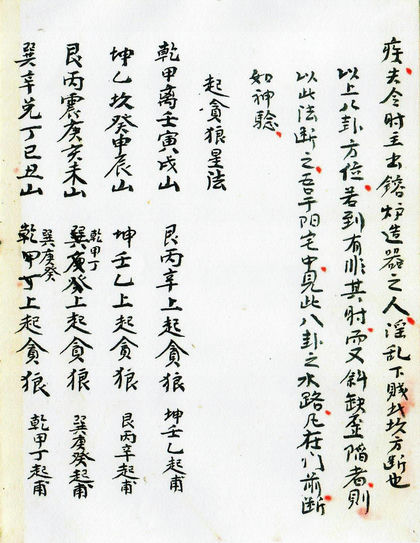 疾失令时主出鎔炉造器之人淫乱下贱此坎方断也
以上八卦方位若到有非其时而又斜缺歪陷者则
以此法断之吾于阳宅中見此八卦之水路凡在门前断
如神驗
起貪狼星法
乾甲离壬寅戌山 艮丙辛上起貪狼 坤壬乙起甫
坤乙坎癸申辰山 坤壬乙上起貪狼 艮丙辛起甫
艮丙震庚亥未山 巽庚癸上起貪狼 巽庚癸起甫
乾甲丁
巽辛兑丁巳丑山 乾甲丁上起貪狼 乾甲丁起甫
巽庚癸